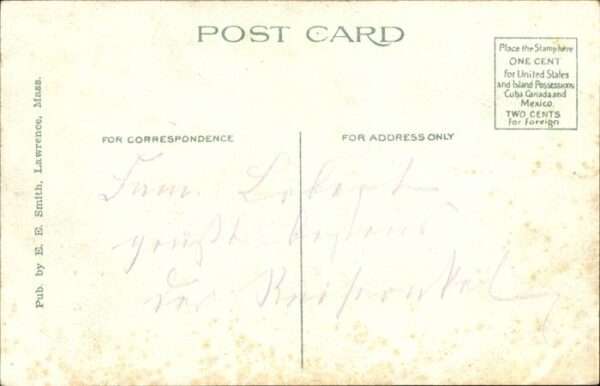 POST CARD
Place the Stamp here
ONE CENT
for United States
and Island Possessions
Cuba Canada and
Mexico.
TWO CENTS
for Foreign
FOR CORRESPONDENCE
FOR ADDRESS ONLY
Pub. by E. E. Smith, Lawrence, Mass.
Fam.
grüßt bestens
der